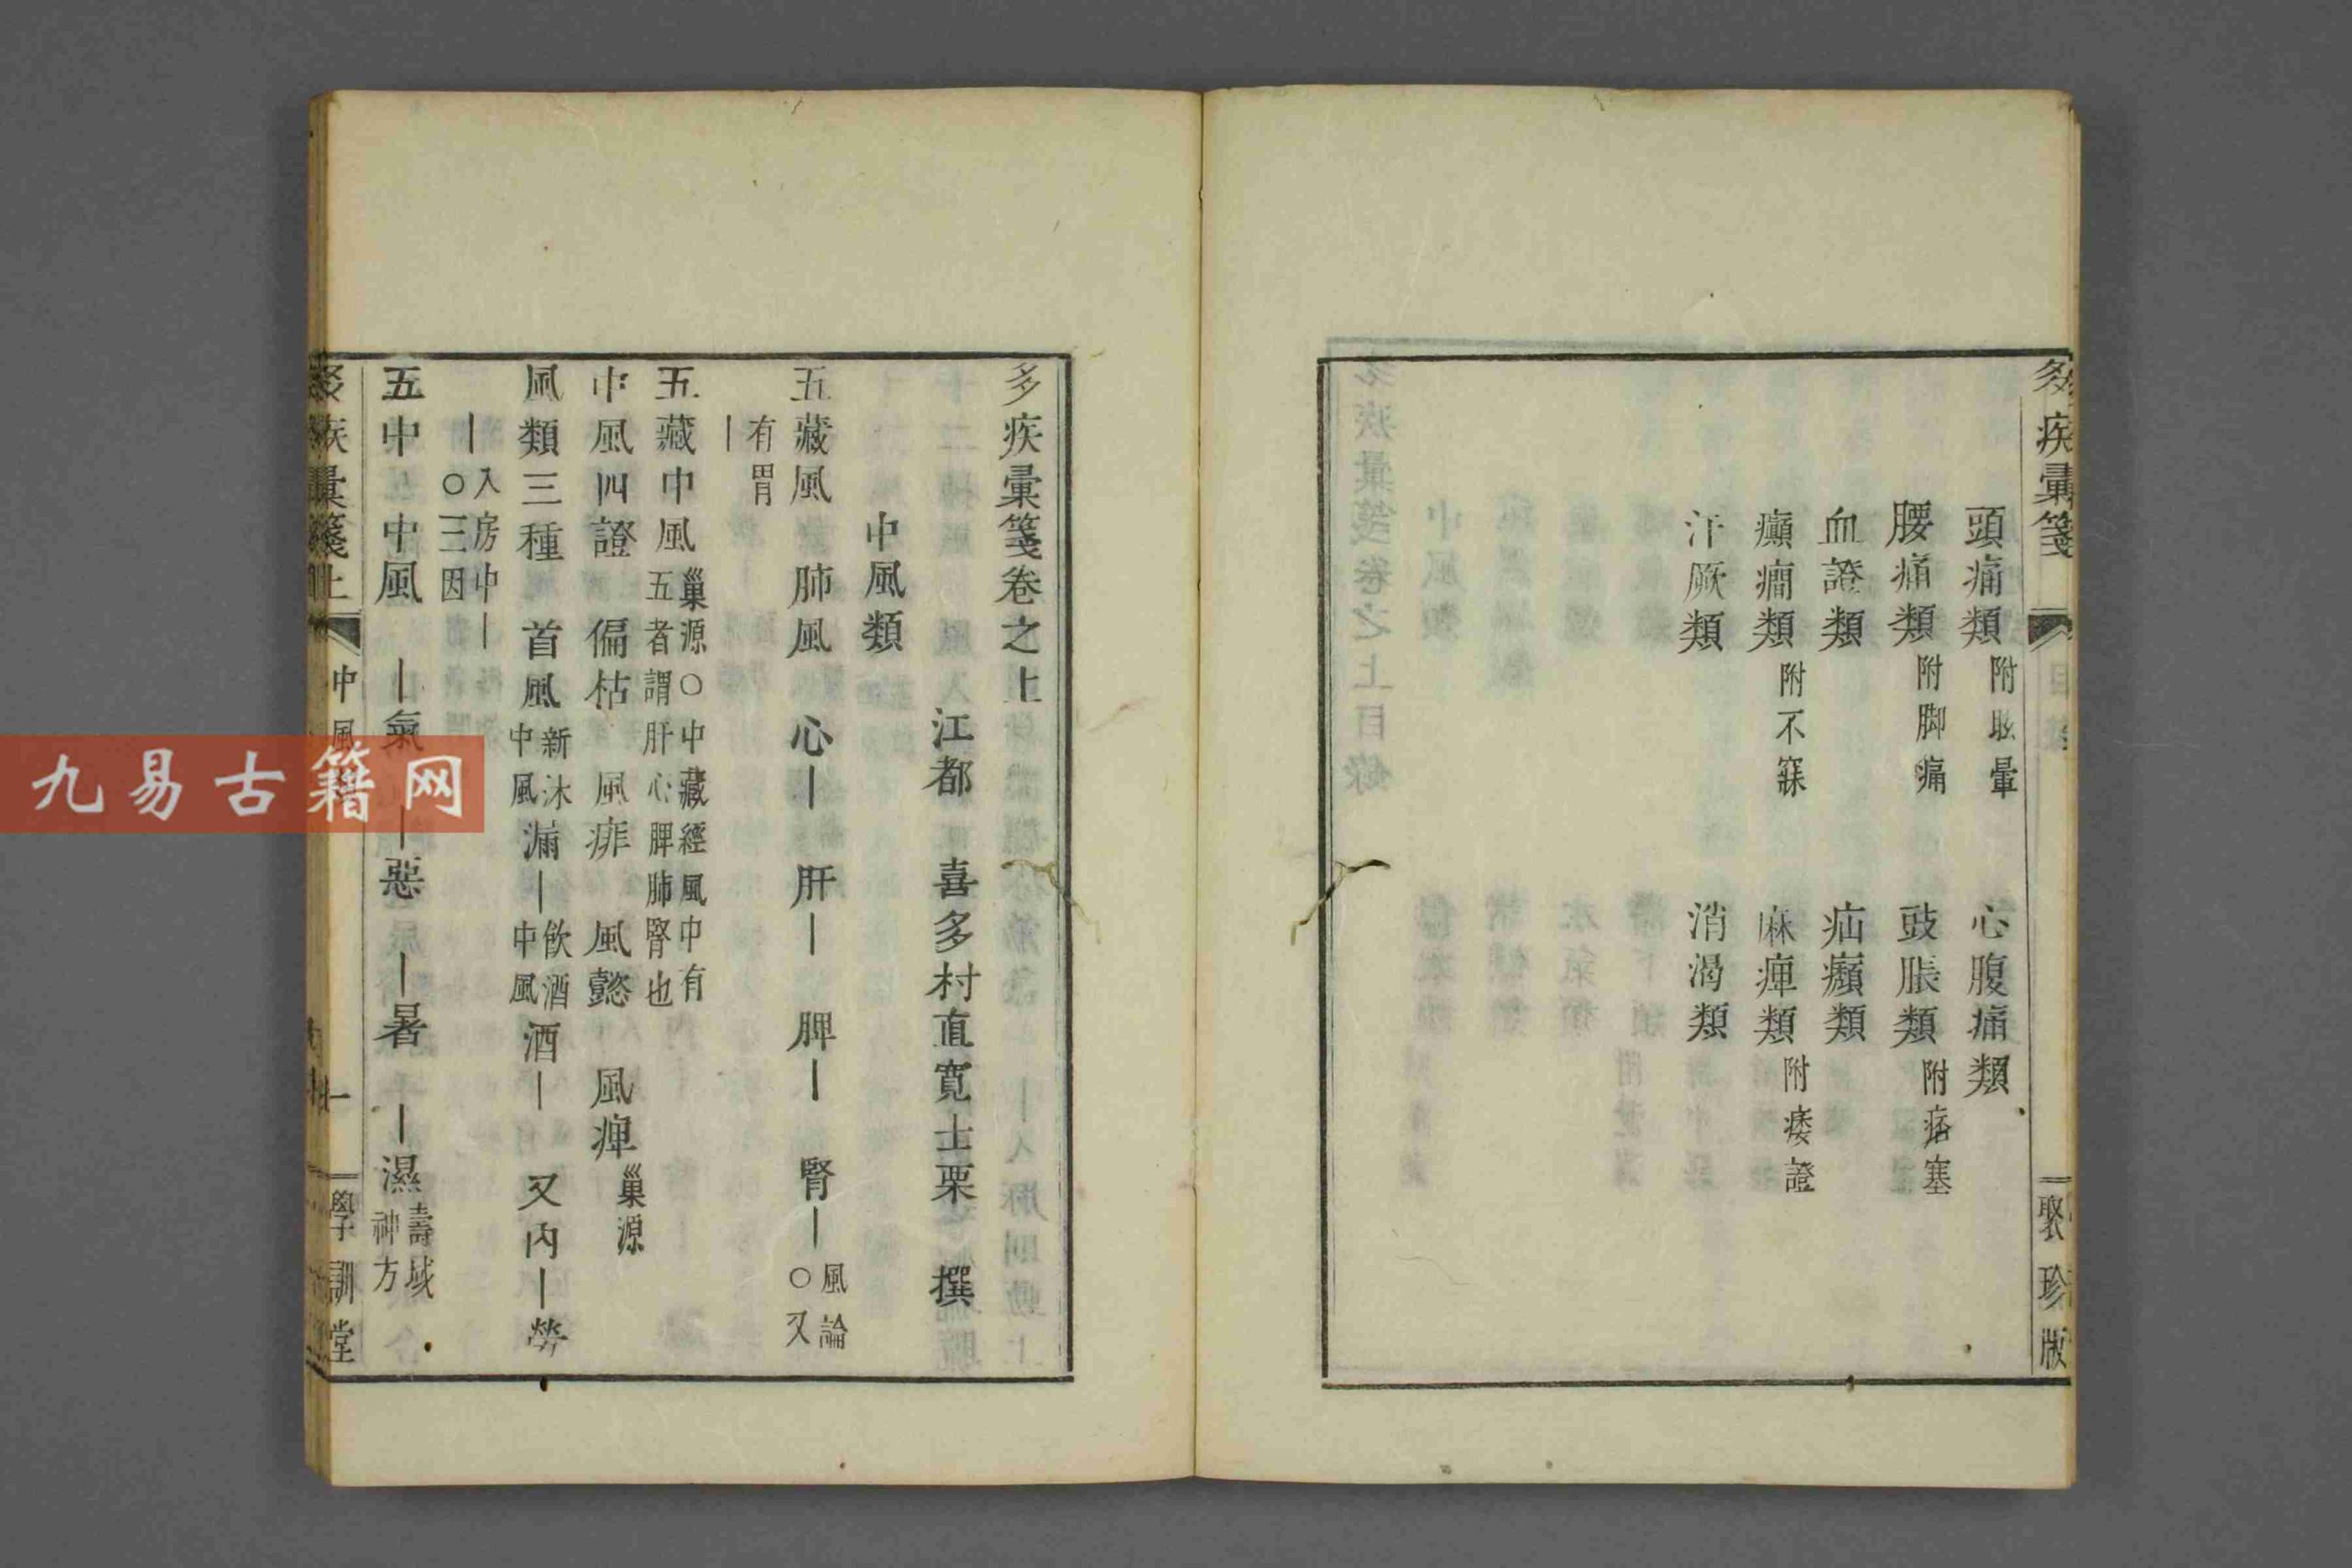 頭痛類 附眩暈 心腹痛類
腰痛類 附脚痛 鼓脹類 附痞塞
血證類 疝㿗類
癲癇類 附不寐 麻痺類 附痿證
汗厥類 消渴類
疾彙箋
聚珍版
多疾彙箋卷之上
江都 喜多村直寬士栗 撰
中風類
五藏風 肺風 心｜ 肝｜ 脾｜ 腎｜ 風論○又
有胃｜
五藏中風 巢源○中藏經風中有五者謂肝心脾肺腎也
中風四證 偏枯 風痱 風懿 風痺 巢源
風類三種 首風 新沐中風 漏｜ 飲酒中風 酒｜ 又內｜勞
｜ 入房中｜○三因
五中中風 ｜氣 ｜惡 ｜暑 ｜濕 壽域神方
疾彙箋上 中風 一 學訓堂
九易古籍网